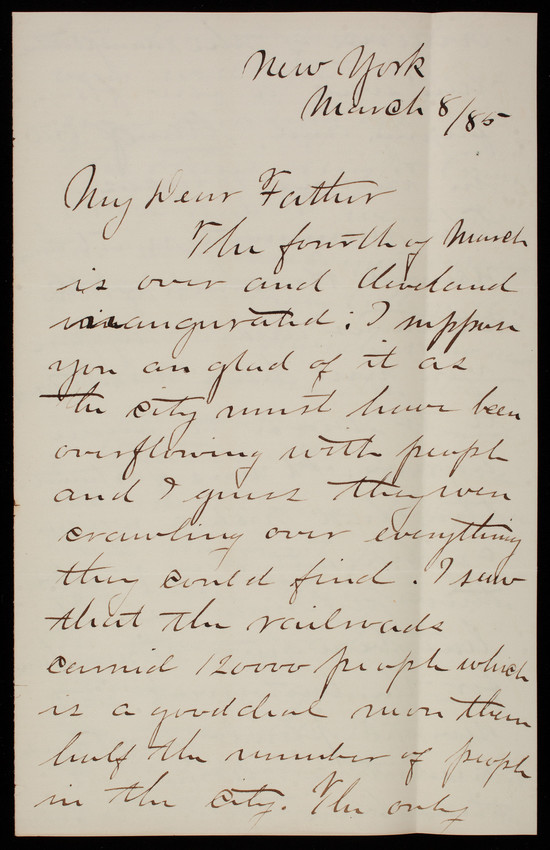 New York
March 8/85
My Dear Father
The fourth of March
is over and Cleveland
inaugurated; I suppose
you are glad of it as
the city must have been
overflowing with people
and I guess they were
crawling over everything
they could find. I saw
that the railroads
carried 120000 people which
is a good deal more than
half the number of people
in the city. The only